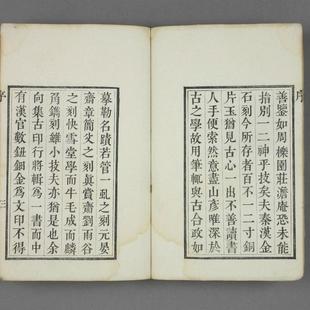 序
善鑒如周櫟園莊澹庵恐未能
指別一二神乎技矣夫秦漢金
石刻今所存者百不一二寸銅
片玉猶見古心一出不善讀書
人手便索然意盡山彥唯深於
古之學故用筆輒與古合政如
摹勒名蹟若管一虬之刻元晏
齋章簡父之刻真賞齋劉雨谷
之刻快雪堂學而牛毛成而麟
角鐫刻雖小技夫亦猶是也余
向集古印行將輯為一書而中
有漢官數鈕銅金為文印不得
序
三